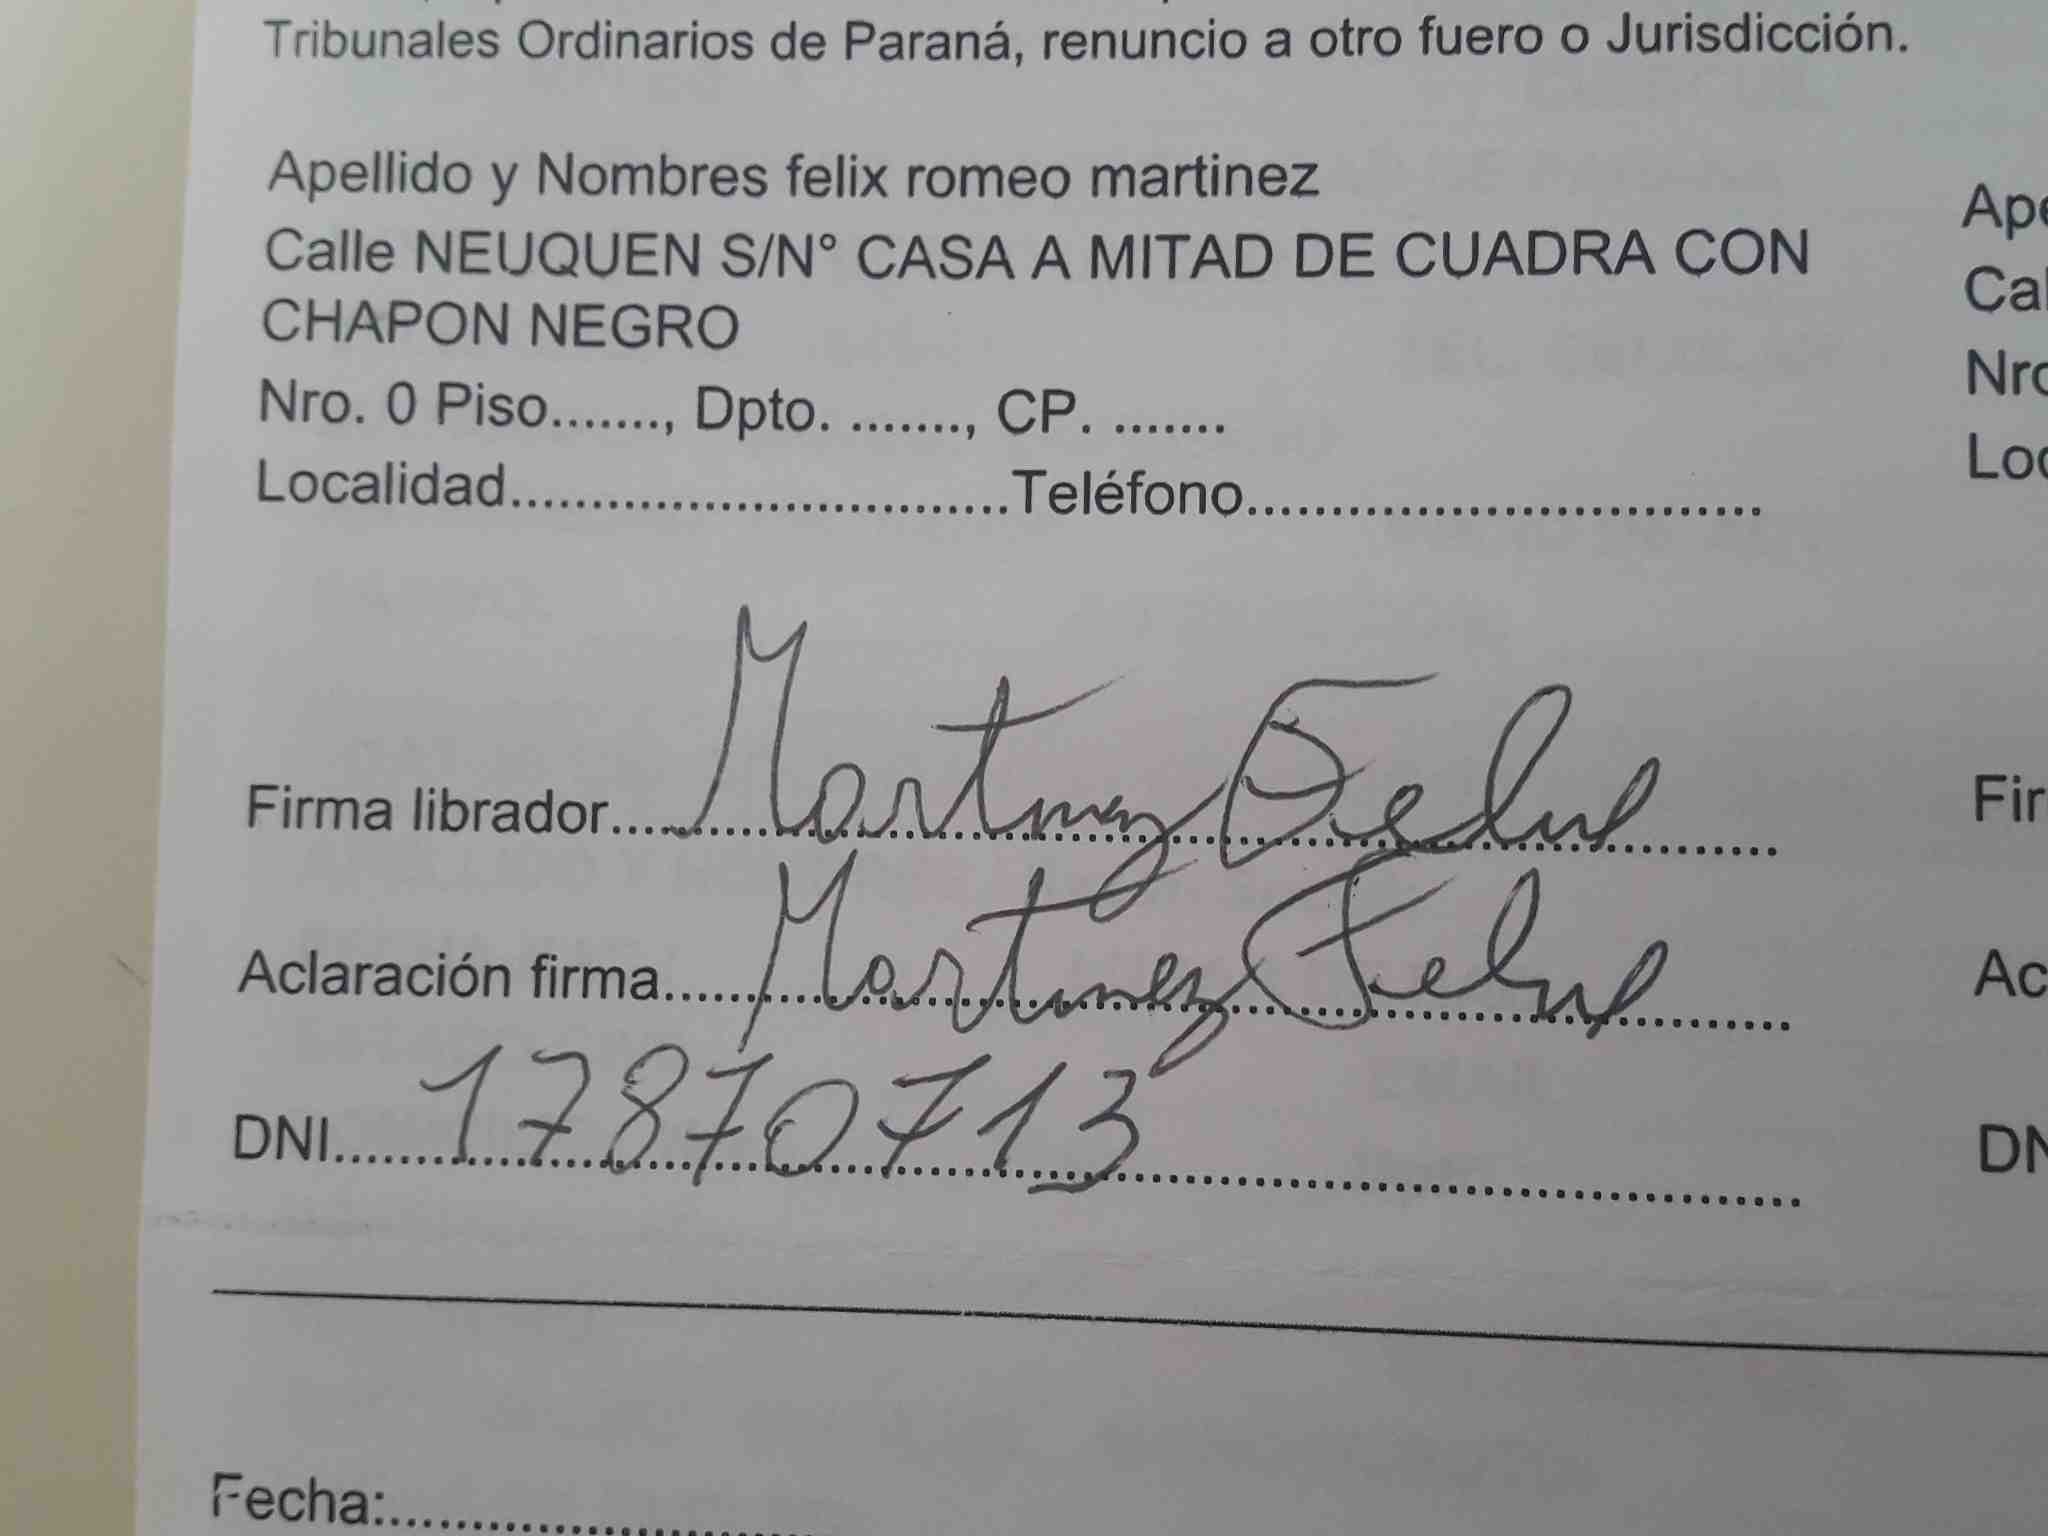 Tribunales Ordinarios de Paraná, renuncio a otro fuero o Jurisdicción.
Apellido y Nombres felix romeo martinez
Calle NEUQUEN S/N° CASA A MITAD DE CUADRA CON
CHAPON NEGRO
Nro. 0 Piso......., Dpto. ......., CP. .......
Localidad...............................Teléfono................................
Firma librador.... Martinez Felix
Aclaración firma..... Martinez Felix
DNI..... 17870713
Fecha:............................
Ape
Cal
Nro
Loc
Fir
Ac
DN